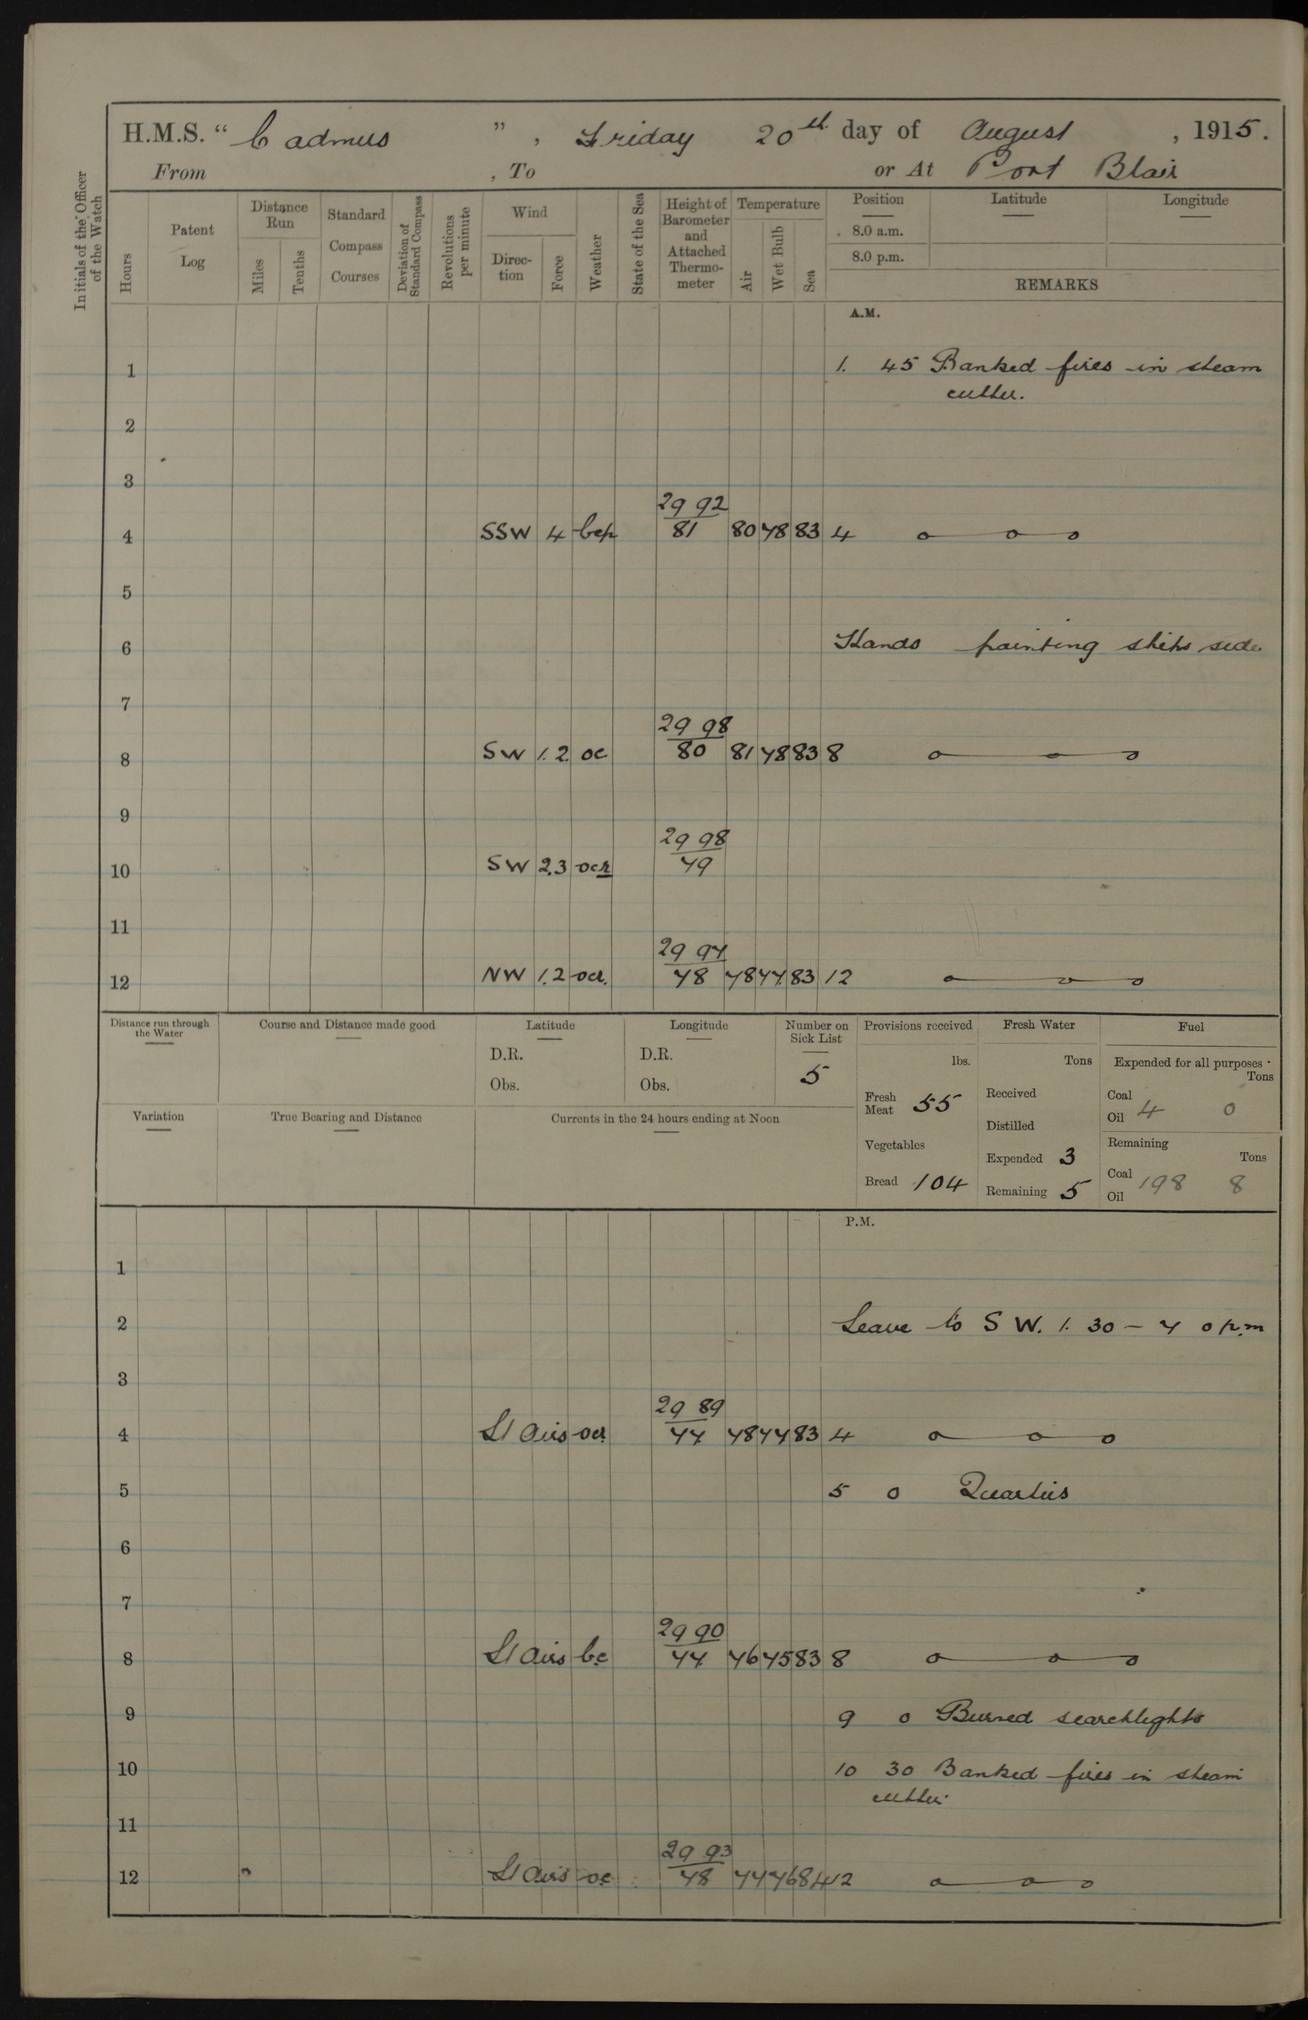 H.M.S. “ Cadmus ” , Friday 20th day of August , 1915.
From , To or At Port Blair
Initials of the Officer of the Watch
Hours
Patent Log
Distance Run
Miles
Tenths
Standard Compass Courses
Deviation of Standard Compass
Revolutions per minute
Wind
Direction
Force
Weather
State of the Sea
Height of Barometer and Attached Thermometer
Temperature
Air
Wet Bulb
Sea
Position Latitude Longitude
8.0 a.m.
8.0 p.m.
REMARKS
A.M.
1 1. 45 Banked fires in steam
cutter.
2
3
29 92
4 SSW 4 bcp 81 80 78 83 4 o o o
5
6 Hands painting ships side.
7
29 98
8 SW 1.2 oc 80 81 78 83 8 o o o
9
29 98
10 SW 2.3 ocr 79
11
29 97
12 NW 1.2 ocr. 78 78 77 83 12 o o o
Distance run through the Water
Course and Distance made good
Latitude
D.R.
Obs.
Longitude
D.R.
Obs.
Number on Sick List
5
Provisions received
lbs.
Fresh Meat 55
Vegetables
Bread 104
Fresh Water
Tons
Received
Distilled
Expended 3
Remaining 5
Fuel
Expended for all purposes
Tons
Coal
Oil 4 0
Remaining
Tons
Coal 198 8
Oil
Variation
True Bearing and Distance
Currents in the 24 hours ending at Noon
P.M.
1
2 Leave to S W. 1. 30 – 7 0 p.m
3
29 89
4 Lt Airs ocr 77 78 77 83 4 o o o
5 5 0 Quarters
6
7
29 90
8 Lt Airs b.c 77 76 75 83 8 o o o
9 9 0 Burned searchlights
10 10 30 Banked fires in steam
cutter.
11
29 93
12 Lt Airs o.c 78 77 76 84 12 o o o